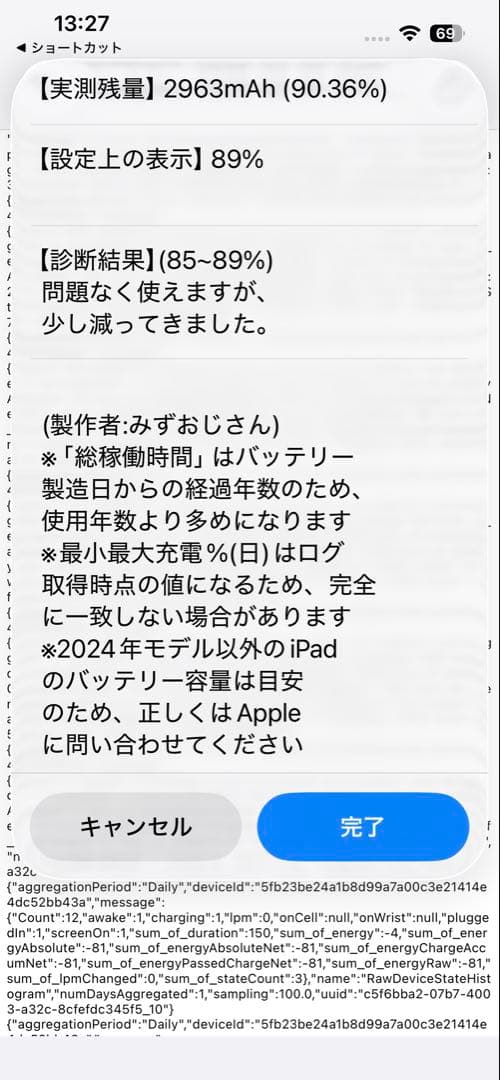 13:27
69
◀ ショートカット
【実測残量】2963mAh (90.36%)
【設定上の表示】89%
【診断結果】(85~89%)
問題なく使えますが、
少し減ってきました。
(製作者:みずおじさん)
※「総稼働時間」はバッテリー
製造日からの経過年数のため、
使用年数より多めになります
※最小最大充電%(日)はログ
取得時点の値になるため、完全
に一致しない場合があります
※2024年モデル以外のiPad
のバッテリー容量は目安
のため、正しくはApple
に問い合わせてください
キャンセル
完了
{"aggregationPeriod":"Daily","deviceId":"5fb23be24a1b8d99a7a00c3e21414e
4dc52bb43a","message":
{"Count":12,"awake":1,"charging":1,"lpm":0,"onCell":null,"onWrist":null,"plugge
dIn":1,"screenOn":1,"sum_of_duration":150,"sum_of_energy":-4,"sum_of_ener
gyAbsolute":-81,"sum_of_energyAbsoluteNet":-81,"sum_of_energyChargeAcc
umNet":-81,"sum_of_energyPassedChargeNet":-81,"sum_of_energyRaw":-81,"
sum_of_lpmChanged":0,"sum_of_stateCount":3},"name":"RawDeviceStateHist
ogram","numDaysAggregated":1,"sampling":100.0,"uuid":"c5f6bba2-07b7-400
3-a32c-8cfefdc345f5_10"}
{"aggregationPeriod":"Daily","deviceId":"5fb23be24a1b8d99a7a00c3e21414e